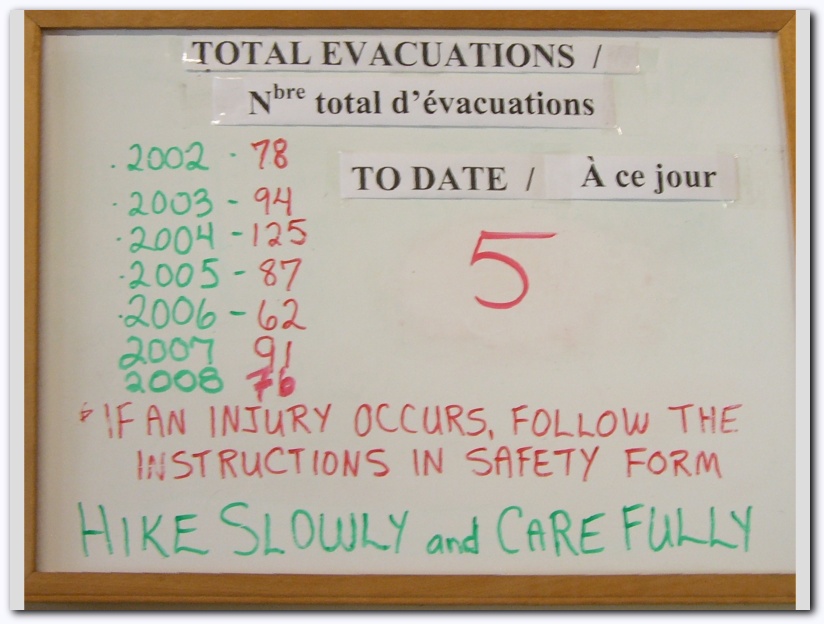 TOTAL EVACUATIONS /
Nbre total d'évacuations
TO DATE / À ce jour
5
. 2002 - 78
. 2003 - 94
. 2004 - 125
. 2005 - 87
. 2006 - 62
2007 91
2008 76
* IF AN INJURY OCCURS, FOLLOW THE
INSTRUCTIONS IN SAFETY FORM
HIKE SLOWLY and CAREFULLY